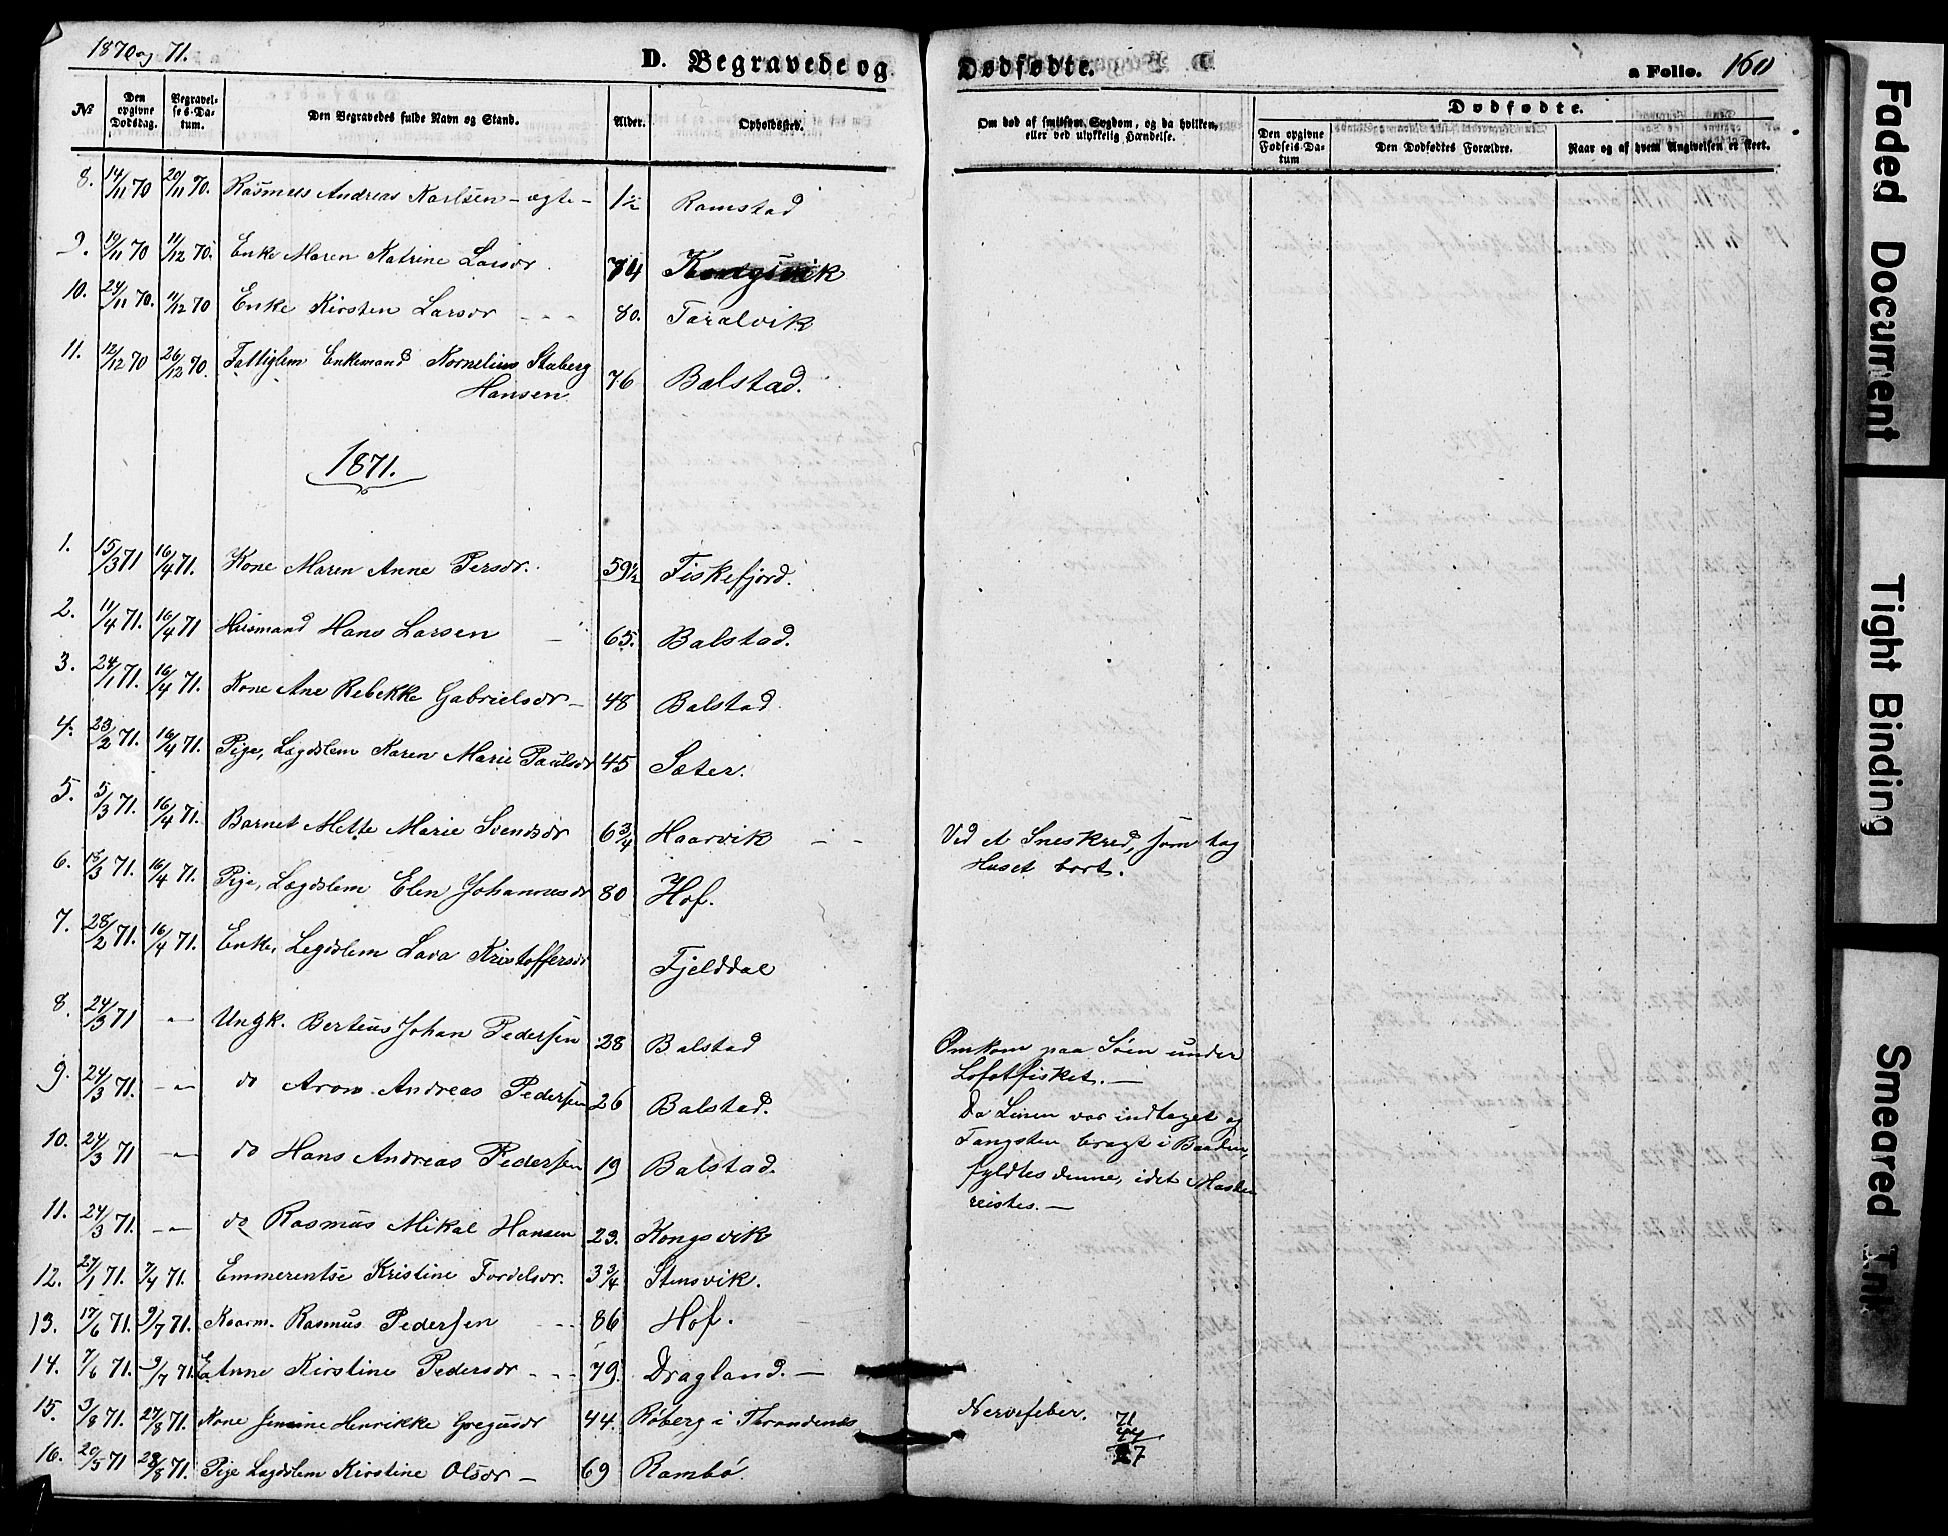 1870 og 71.
D. Begravede og Dødfødte.
a Folio. 160
№
Den opgivne Dødsdag.
Begravelses-Datum.
Den Begravedes fulde Navn og Stand.
Alder.
Opholdssted.
Om død af smitsom Sygdom, og da hvilken, eller ved ulykkelig Hændelse.
Dødfødte.
Den opgivne Fødsels-Datum
Den Dødfødtes Forældre.
Naar og af hvem Angivelsen er skeet.
8. 14/11 70 20/11 70. Rasmus Andreas Karlsen - ægte - 1½ Ramstad
9. 19/11 70 11/12 70. Enke Maren Katrine Larsdr. 74 Kongsvik
10. 24/11 70. 11/12 70 Enke Kirsten Larsdr - - - 80. Taralvik
11. 12/12 70 26/12 70. Fattiglem Enkemand Kornelius Staberg
Hansen 76 Balstad.
1871.
1. 15/3 71 16/4 71. Kone Maren Anne Persdr. 59½ Fiskefjord.
2. 11/4 71. 16/4 71 Husmand Hans Larsen - 65. Balstad.
3. 24/1 71. 16/4 71. Kone Ane Rebekke Gabrielsdr - 48 Balstad
4. 23/2 71. 16/4 71. Pige, Lægdslem Karen Marie Paulsdr 45 Sæter.
5. 5/3 71. 16/4 71. Barnet Mette Marie Svendsdr 6¾ Haarvik - - Ved et Sneskred, som tog
Huset bort.
6. 15/3 71. 16/4 71. Pige, Lægdslem Elen Johannesdr 80 Hof.
7. 28/2 71. 16/4 71. Enke, Legdslem Lava Kristoffersdr Fjelddal
8. 24/3 71 -"- Ungk. Berteus Johan Pedersen 28 Balstad Omkom paa Søen under
Lofotfisket. -
9. 24/3 71. -"- do Aron Andreas Pedersen 26 Balstad. Da Linen var indtaget og
10. 24/3 71 -"- do Hans Andreas Pedersen 19 Balstad. Fangsten bragt i Baaden,
fyldtes denne, idet Masten
reistes. -
11. 24/3 71. -"- do Rasmus Mikal Hansen 23. Kongsvik
12. 27/1 71. 7/4 71. Emmerentse Kristine Fordelsdr. 3¾ Stensvik.
13. 17/6 71. 9/7 71. Kaarm. Rasmus Pedersen - - 86 Hof.
14. 7/6 71. 9/7 71. E. Anne Kirstine Pedersdr - - - 79. Dragland. -
15. 3/8 71. 27/8 71. Kone Jensine Henrikke Gregusdr 44. Røberg i Throndenæs Nervefeber. 71
44
27
16. 20/5 71 28/8 71. Pige Lægdslem Kirstine Olsdr - 69 Rambø.
Faded Document
Tight Binding
Smeared Ink